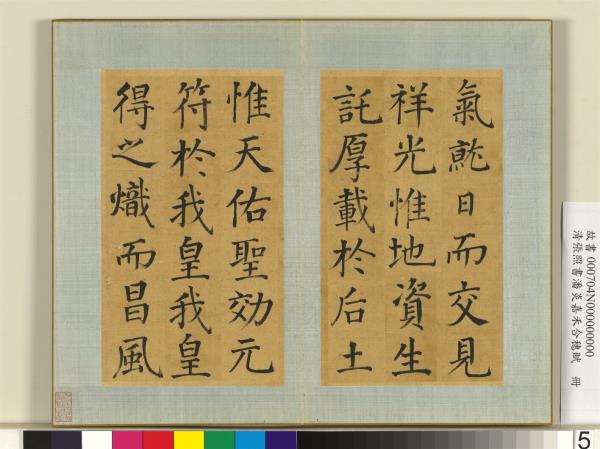 氣就日而交見
祥光惟地資生
託厚載於后土
惟天佑聖効元
符於我皇我皇
得之熾而昌風
故書 000704N000000000
清張照書潘炎嘉禾合穗賦 冊
5